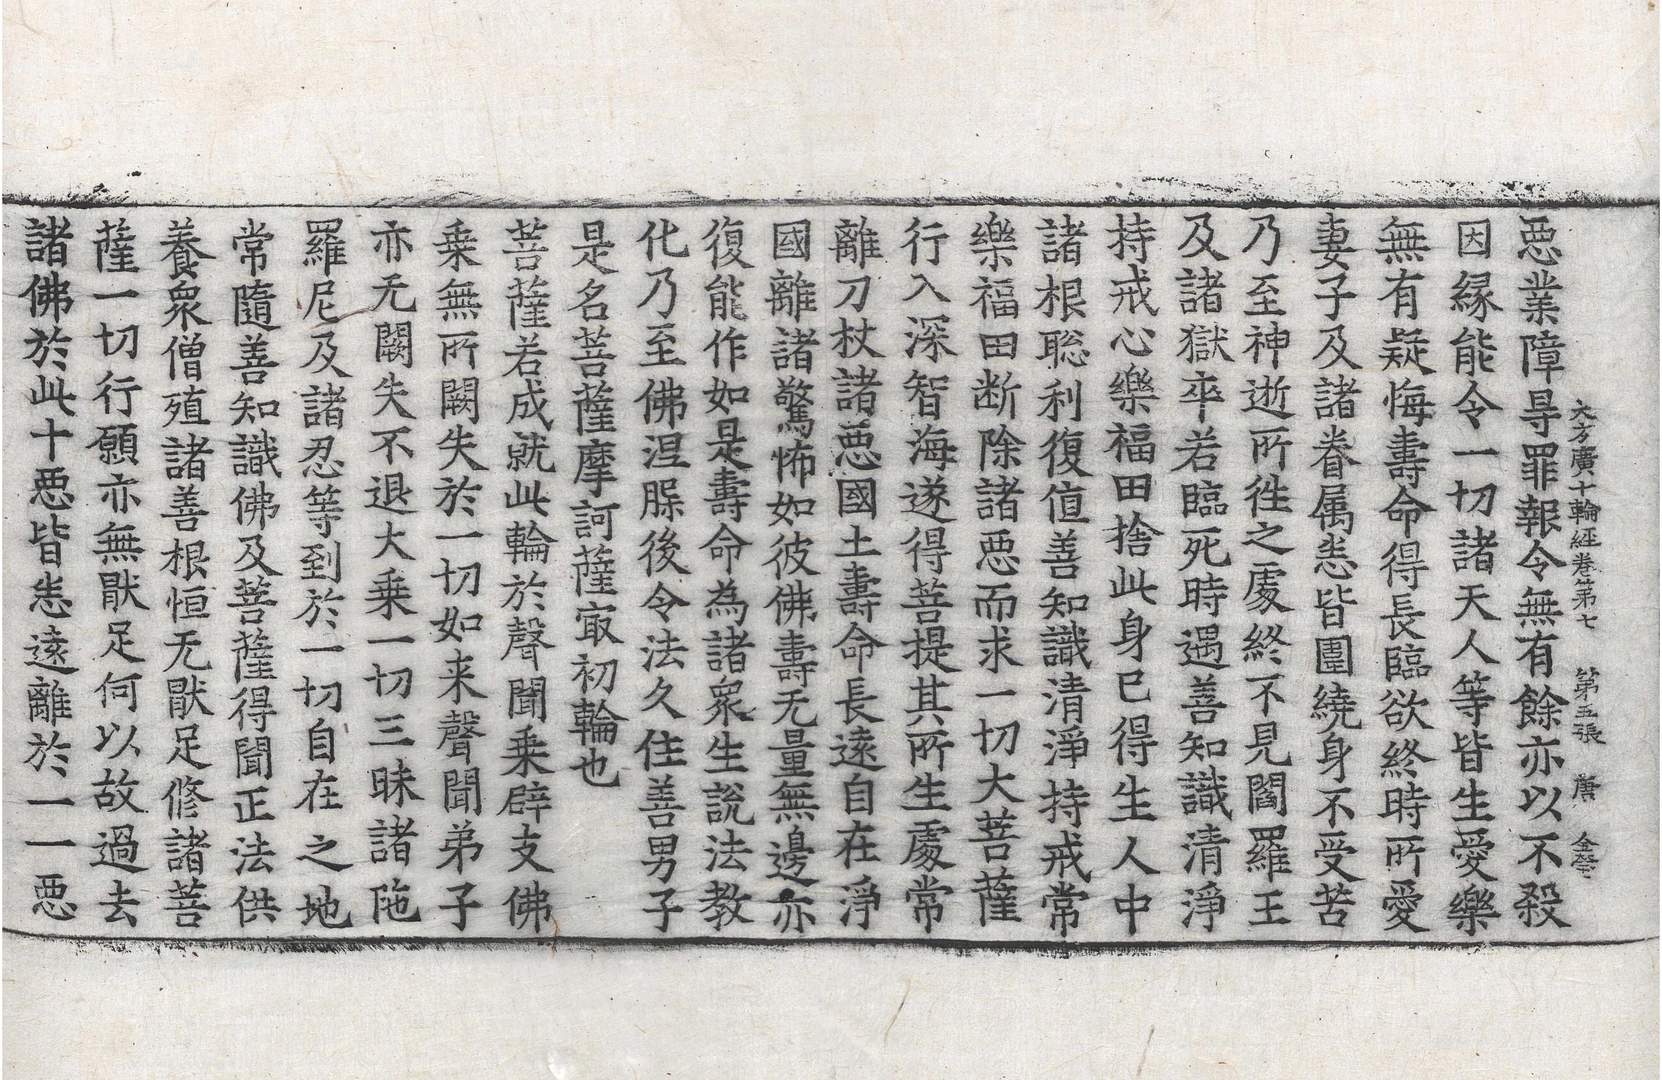 大方廣十輪經卷第七　第五張　唐　金
惡業障㝵罪報令無有餘亦以不殺
因緣能令一切諸天人等皆生愛樂
無有疑悔壽命得長臨欲終時所愛
妻子及諸眷属悉皆圍繞身不受苦
乃至神逝所往之處終不見閻羅王
及諸獄卒若臨死時遇善知識清淨
持戒心樂福田捨此身已得生人中
諸根聡利復值善知識清淨持戒常
樂福田断除諸惡而求一切大菩薩
行入深智海遂得菩提其所生處常
離刀杖諸惡國土壽命長遠自在淨
國離諸驚怖如彼佛壽无量無邊亦
復能作如是壽命為諸衆生說法教
化乃至佛涅膝後令法久住善男子
是名菩薩摩訶薩㝡初輪也
菩薩若成就此輪於聲聞乗辟支佛
乗無所闕失於一切如来聲聞弟子
亦无闕失不退大乗一切三昧諸陁
羅尼及諸忍等到於一切自在之地
常隨善知識佛及菩薩得聞正法供
養衆僧殖諸善根恒无猒足修諸菩
薩一切行願亦無猒足何以故過去
諸佛於此十惡皆悉遠離於一一惡